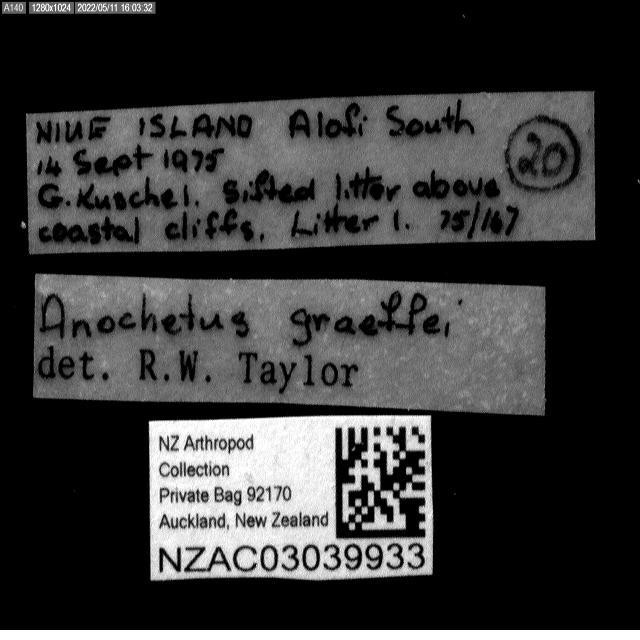 A140 1280x1024 2022/05/11 16:03:32
NIUE ISLAND Alofi South
14 Sept 1975
G. Kuschel. Sifted litter above
coastal cliffs. Litter 1. 75/167
20
Anochetus graeffei
det. R.W. Taylor
NZ Arthropod
Collection
Private Bag 92170
Auckland, New Zealand
NZAC03039933